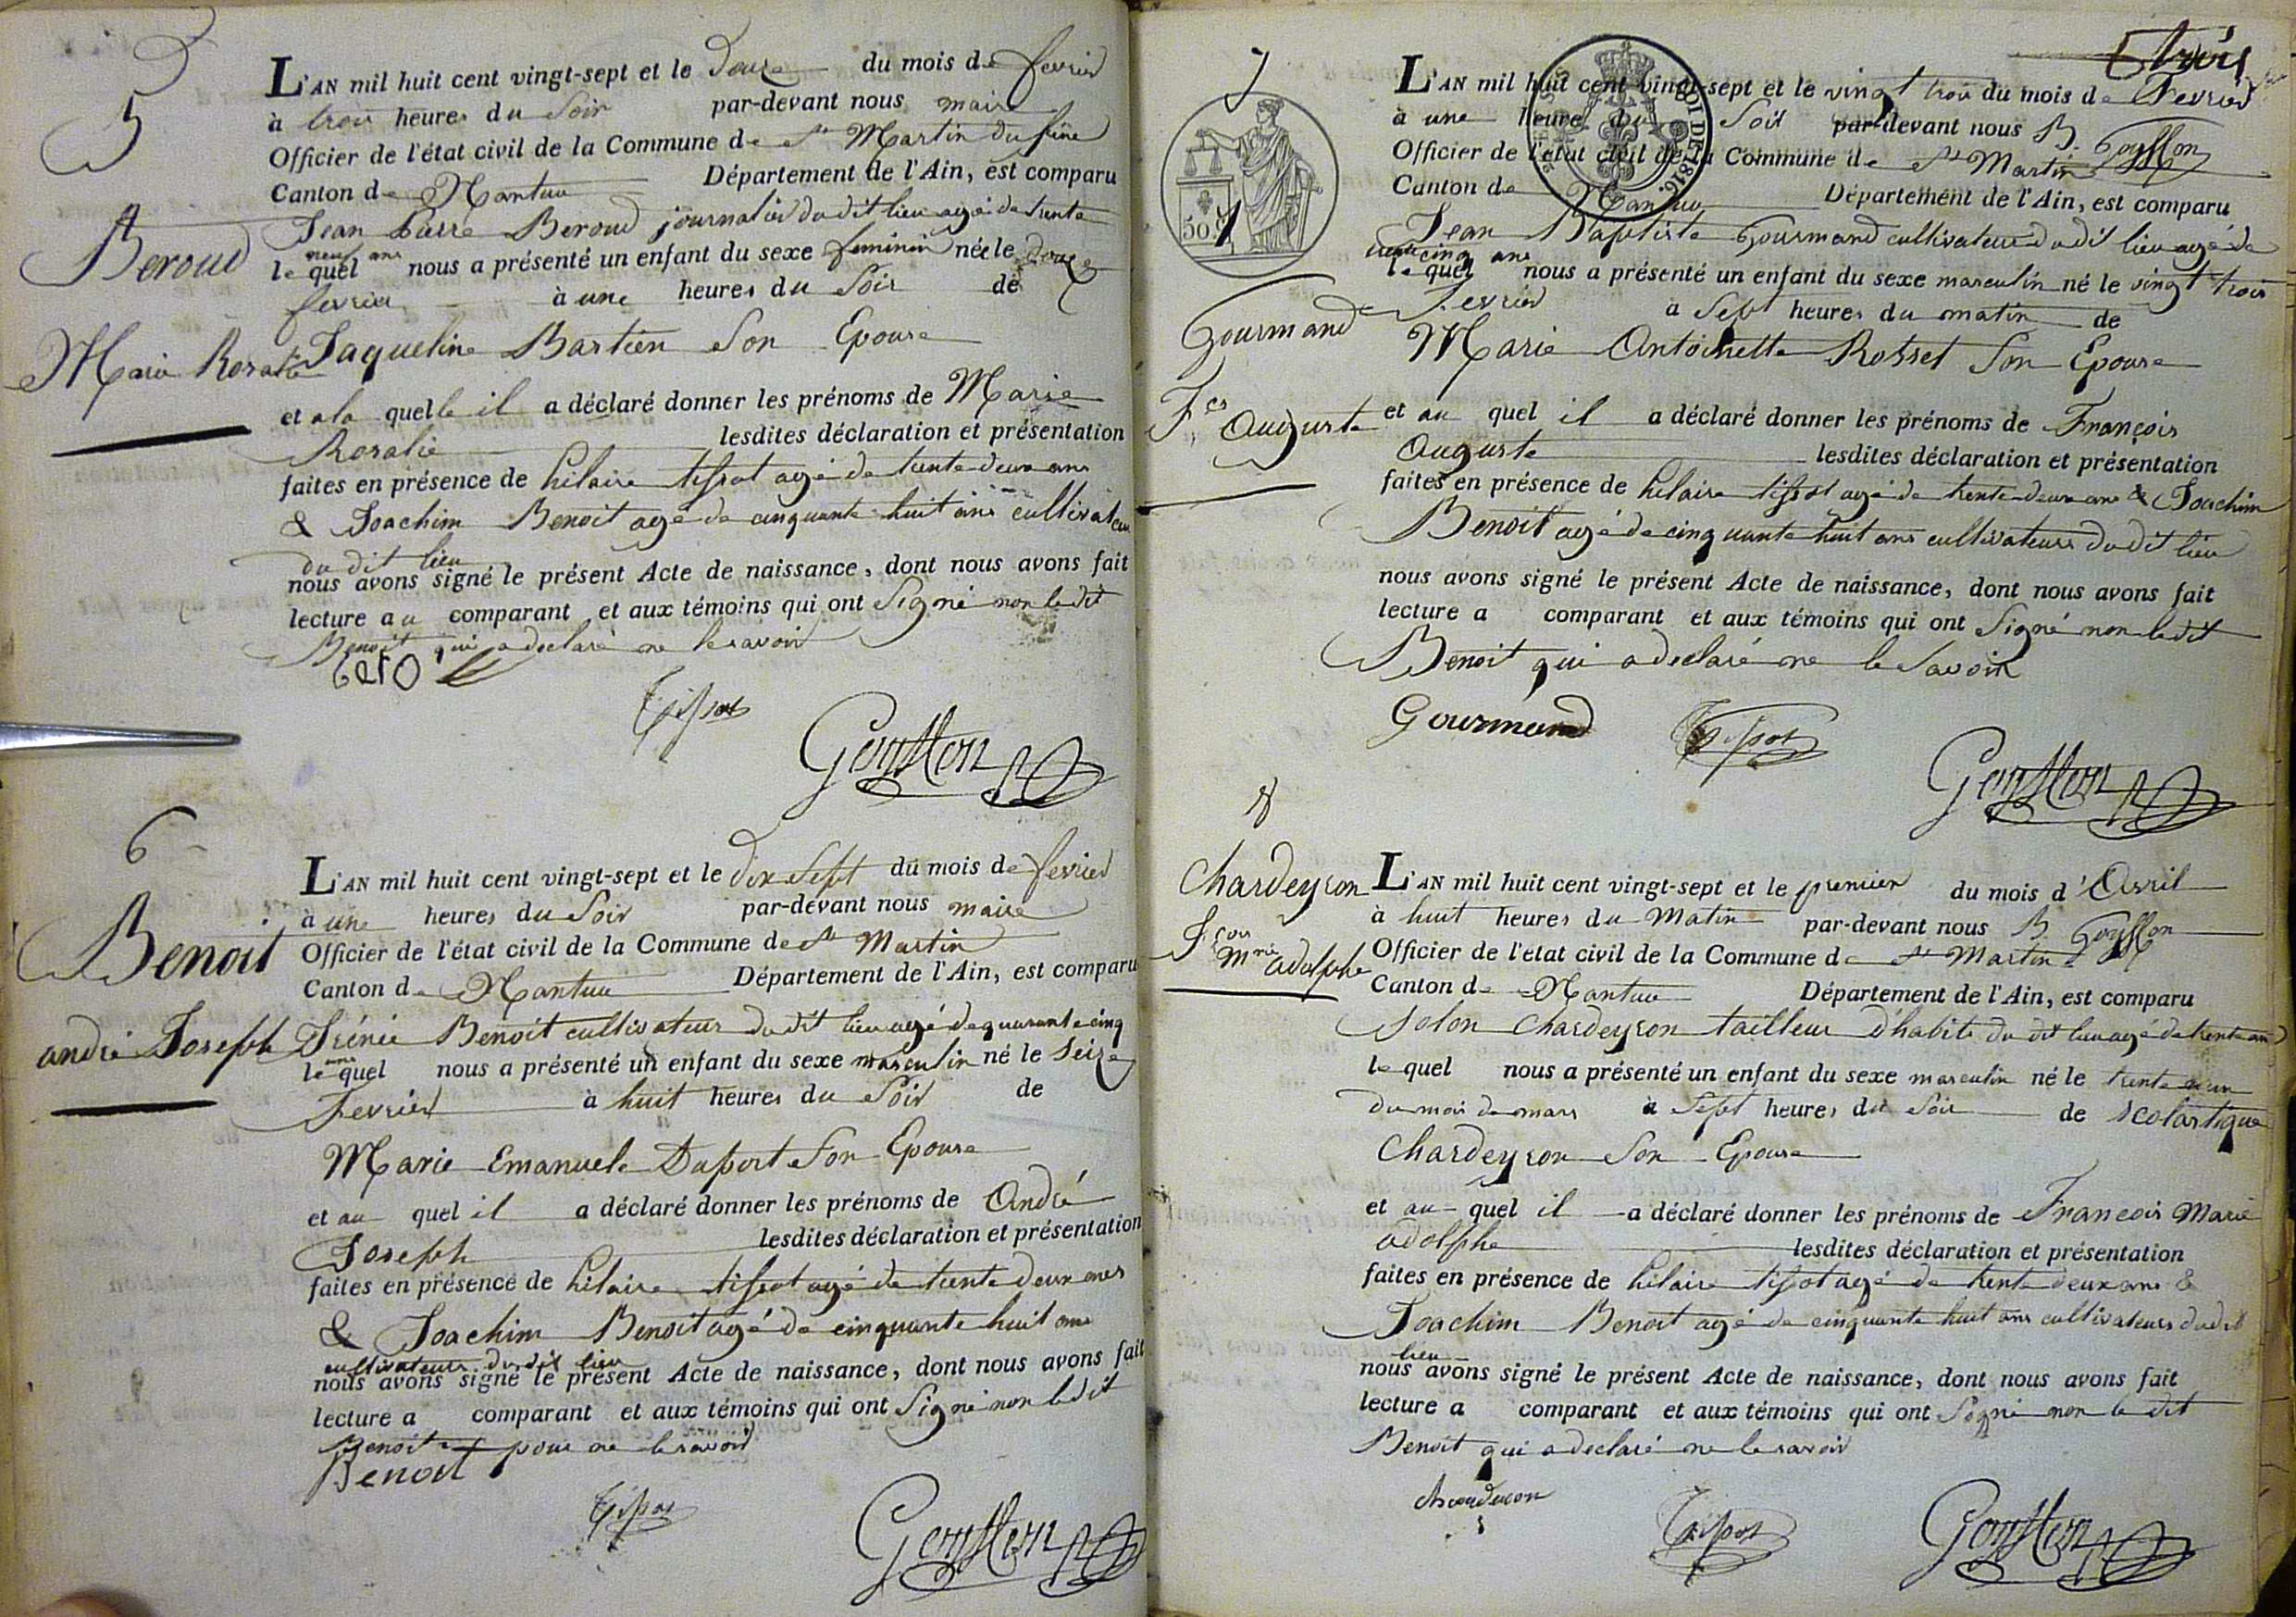 5
Beroud
Marie Rosalie
L'AN mil huit cent vingt-sept et le douze du mois de fevrier
à trois heures du Soir par-devant nous maire
Officier de l'état civil de la Commune de St Martin du frêne
Canton de Nantua Département de l'Ain, est comparu
Jean Pierre Beroud journalier du dit lieu agé de trente
neuf ans
lequel nous a présenté un enfant du sexe feminin née le douze
fevrier à une heures du Soir de
Jaqueline Bastien Son Epouse
et a la quelle il a déclaré donner les prénoms de Marie
Rosalie lesdites déclaration et présentation
faites en présence de hilaire tissot agé de trente deux ans
& Joachim Benoit agé de cinquante huit ans cultivateurs
du dit lieu
nous avons signé le présent Acte de naissance, dont nous avons fait
lecture au comparant et aux témoins qui ont Signé non le dit
Benoit qui a declaré ne le savoir
Tissot
Gouffon
6
Benoit
andré Joseph
L'AN mil huit cent vingt-sept et le dix Sept du mois de fevrier
à une heures du Soir par-devant nous maire
Officier de l'état civil de la Commune de St Martin
Canton de Nantua Département de l'Ain, est comparu
Irénée Benoit cultivateur du dit lieu agé de quarante cinq
ans
lequel nous a présenté un enfant du sexe masculin né le Seize
Fevrier à huit heures du Soir de
Marie Emanuele Duport Son Epouse
et au quel il a déclaré donner les prénoms de André
Joseph lesdites déclaration et présentation
faites en présence de hilaire tissot agé de trente deux ans
& Joachim Benoit agé de cinquante huit ans
cultivateurs du dit lieu
nous avons signé le présent Acte de naissance, dont nous avons fait
lecture a comparant et aux témoins qui ont Signé non le dit
Benoit pour ne le savoir
Benoit
Tissot
Gouffon
trois
7
50
ROI DE 1816.
Gourmand
Fçs Auguste
L'AN mil huit cent vingt-sept et le vingt trois du mois de Fevrier
à une heures du Soir par-devant nous B. Gouffon
Officier de l'état civil de la Commune de St Martin
Canton de Nantua Département de l'Ain, est comparu
Jean Baptiste Gourmand cultivateur du dit lieu agé de
cinq ans
lequel nous a présenté un enfant du sexe masculin né le vingt trois
Fevrier a Sept heures du matin de
Marie Antoinette Rosset Son Epouse
et au quel il a déclaré donner les prénoms de François
Auguste lesdites déclaration et présentation
faites en présence de hilaire tissot agé de trente deux ans & Joachim
Benoit agé de cinquante huit ans cultivateurs du dit lieu
nous avons signé le présent Acte de naissance, dont nous avons fait
lecture a comparant et aux témoins qui ont Signé non le dit
Benoit qui a declaré ne le Savoir
Gourmand
Tissot
Gouffon
8
Chardeyron
Fçois Mrie adolphe
L'AN mil huit cent vingt-sept et le premier du mois d'Avril
à huit heures du Matin par-devant nous B Gouffon
Officier de l'état civil de la Commune de St Martin
Canton de Nantua Département de l'Ain, est comparu
Solon Chardeyron tailleur d'habits du dit lieu agé de trente ans
lequel nous a présenté un enfant du sexe masculin né le trente un
du mois de mars à Sept heures du Soir de Scolastique
Chardeyron Son Epouse
et au quel il a déclaré donner les prénoms de Francois Marie
adolphe lesdites déclaration et présentation
faites en présence de hilaire tissot agé de trente deux ans &
Joachim Benoit agé de cinquante huit ans cultivateurs du dit
lieu
nous avons signé le présent Acte de naissance, dont nous avons fait
lecture a comparant et aux témoins qui ont Signé non le dit
Benoit qui a declaré ne le savoir
Tissot
Gouffon